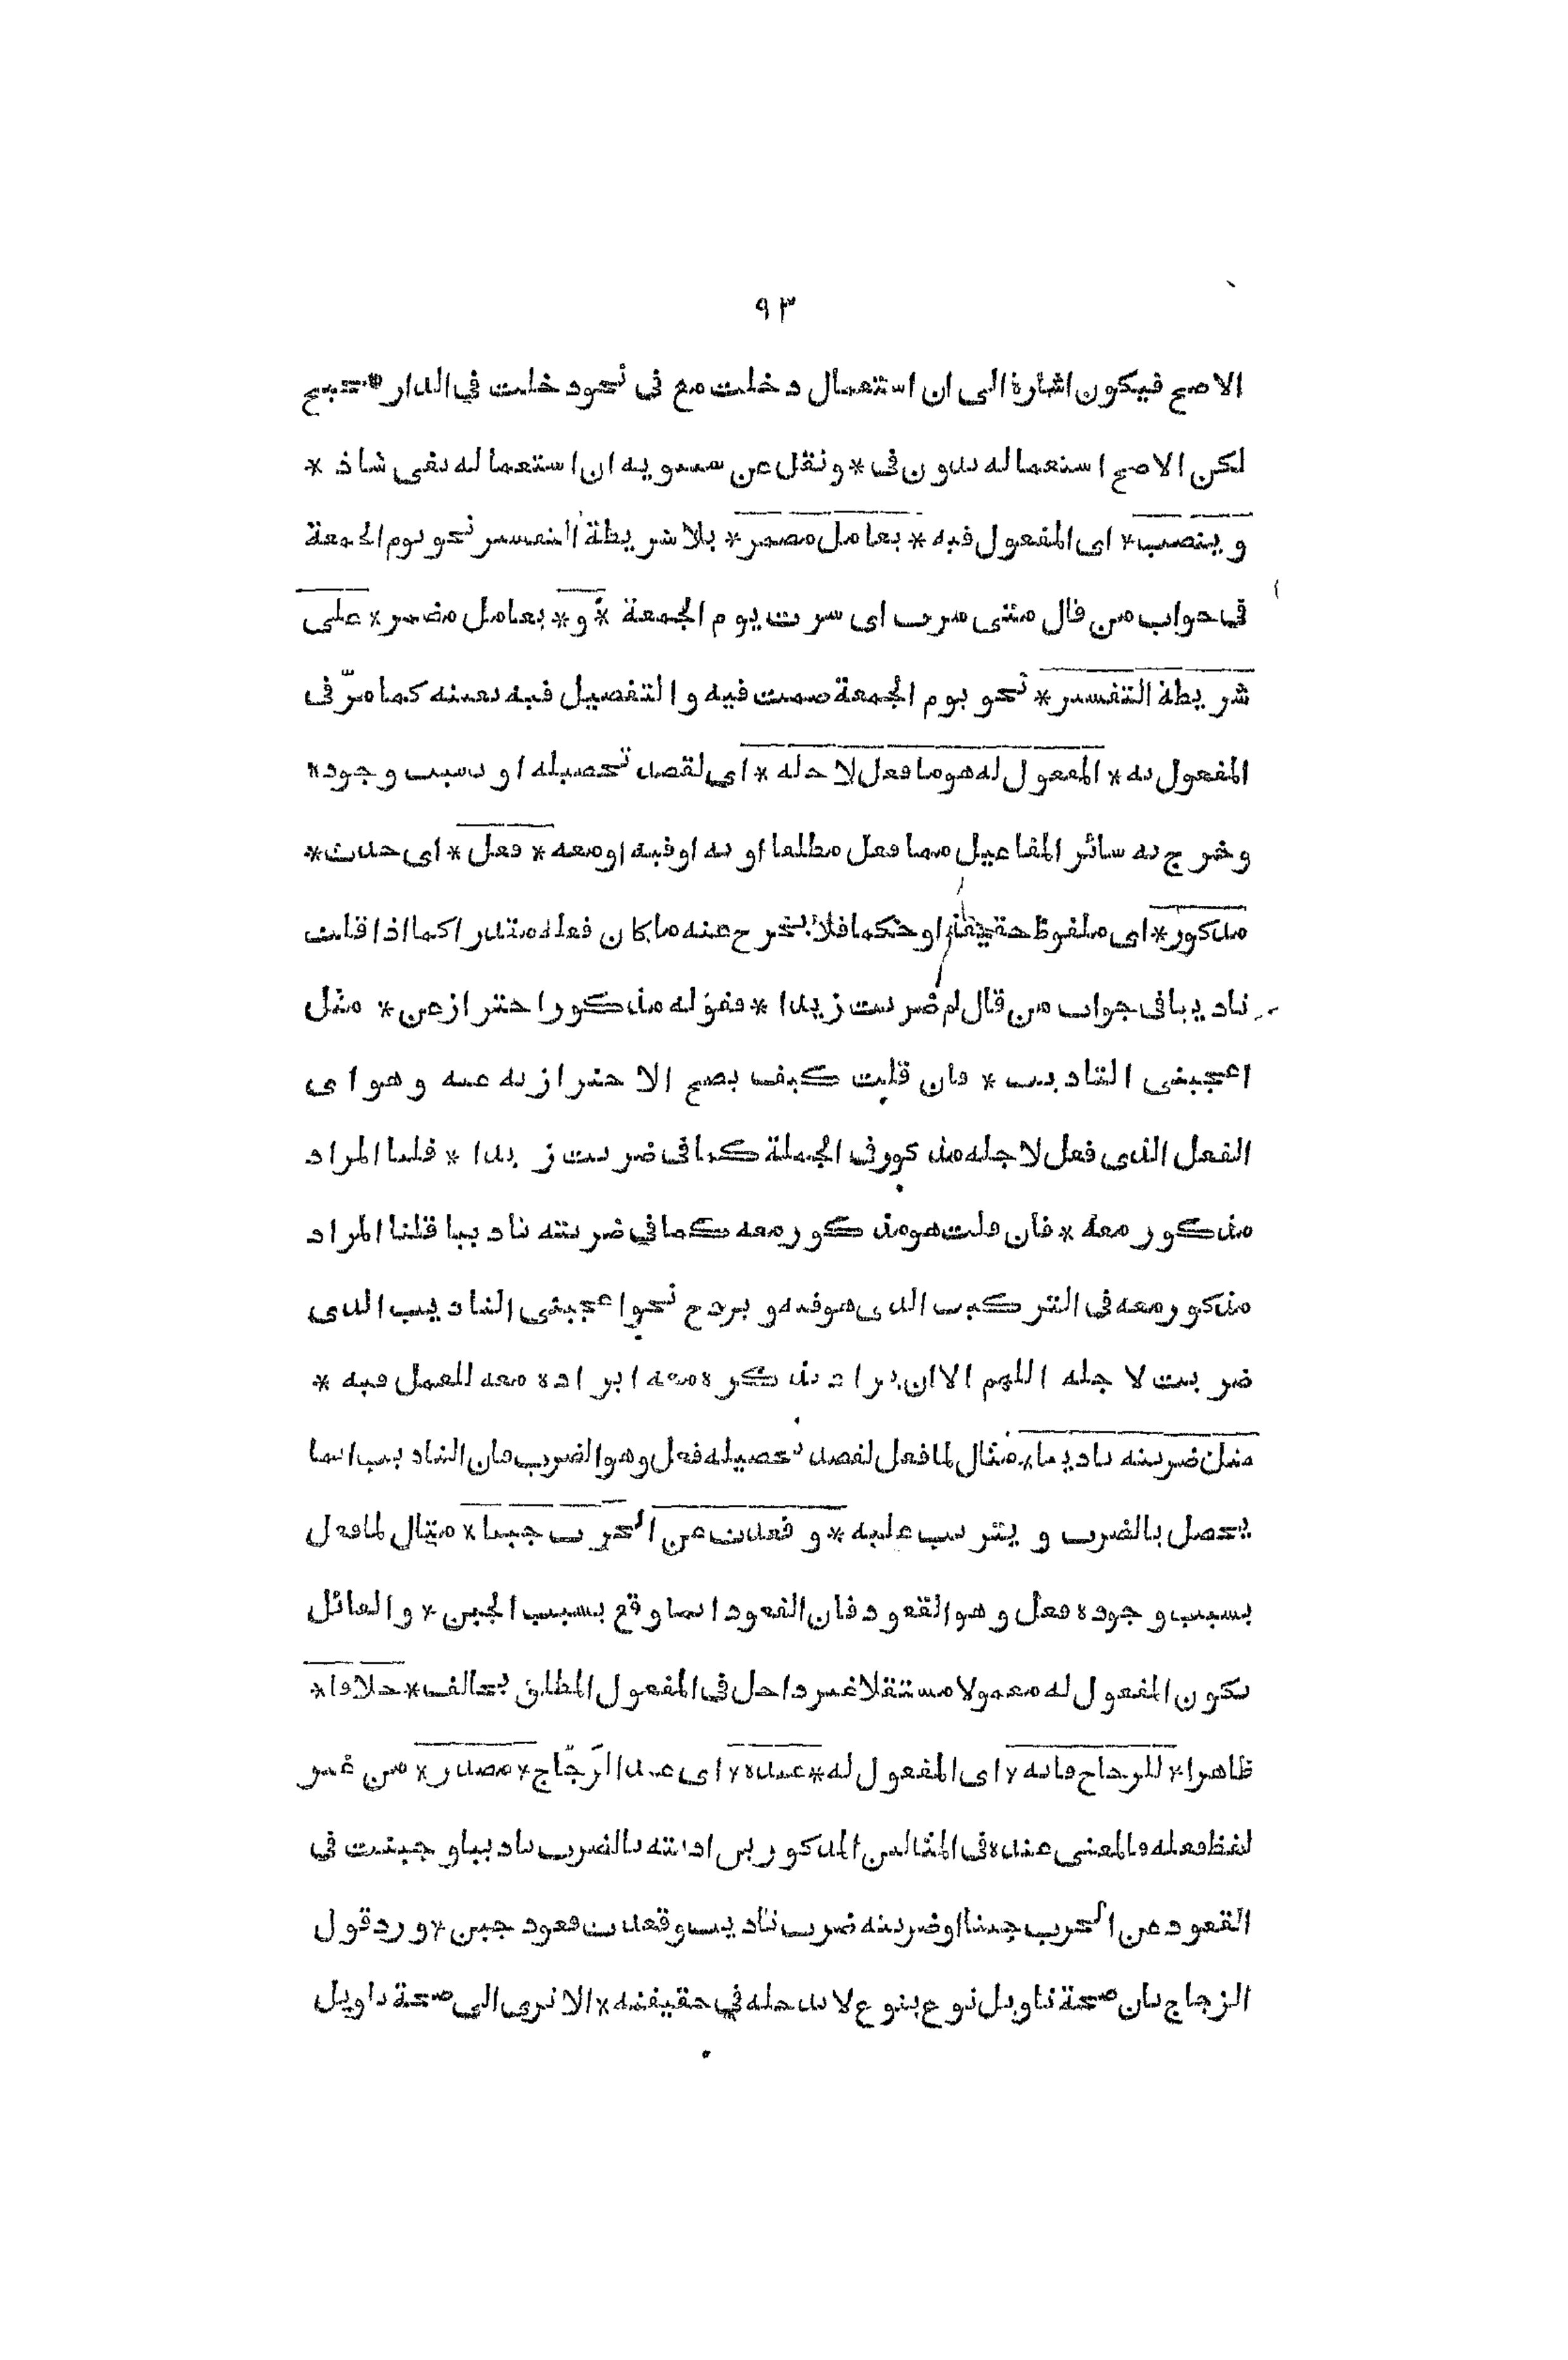 ٩٣
الاصح فيكون اشارة الى ان استعمال دخلت مع فى نحو دخلت فى الدار صحيح
لكن الاصح استعماله بدون فى * ونقل عن سيبويه ان استعماله بفى شاذ *
وينصب * اى المفعول فيه * بعامل مضمر * بلا شريطة التفسير نحو يوم الجمعة
فى جواب من قال متى سرت اى سرت يوم الجمعة * و * بعامل مضمر * على
شريطة التفسير * نحو يوم الجمعة صمت فيه والتفصيل فيه بعينه كما مرّ فى
المفعول به * المفعول له هو ما فعل لاجله * اى لقصد تحصيله او بسبب وجوده
وخرج به سائر المفاعيل مما فعل مطلقا او به او فيه او معه * فعل * اى حدث *
مذكور * اى ملفوظ حقيقة او حكما فلا يخرج عنه ما كان فعله مقدرا كما اذا قلت
تاديبا فى جواب من قال لم ضربت زيدا * فقوله مذكور احتراز عن * مثل
اعجبنى التاديب * فان قلت كيف يصح الاحتراز به عنه وهو اى
الفعل الذى فعل لاجله مذكور فى الجملة كما فى ضربت زيدا * قلنا المراد
مذكور معه * فان قلت هو مذكور معه كما فى ضربته تاديبا قلنا المراد
مذكور معه فى التركيب الذى هو فيه ويرد ح نحو اعجبنى التاديب الذى
ضربت لاجله اللهم الا ان يراد بذكره معه ايراده معه للعمل فيه *
مثل ضربته تاديبا * مثال لما فعل لقصد تحصيله فعل وهو الضرب فان التاديب انما
يحصل بالضرب ويترتب عليه * و قعدت عن الحرب جبنا * مثال لما فعل
بسبب وجوده فعل وهو القعود فان القعود انما وقع بسبب الجبن * والقائل
بكون المفعول له معمولا مستقلا غير داخل فى المفعول المطلق يخالف * خلافا *
ظاهرا * للزجاج فانه * اى المفعول له * عنده * اى عند الزّجّاج * مصدر * من غير
لفظ فعله فالمعنى عنده فى المثالين المذكورين ادبته بالضرب تاديبا وجبنت فى
القعود عن الحرب جبنا او ضربته ضرب تاديب وقعدت قعود جبن * ورد قول
الزجاج بان صحة تاويل نوع بنوع لا تدخله فى حقيقته * الا ترى الى صحة تاويل